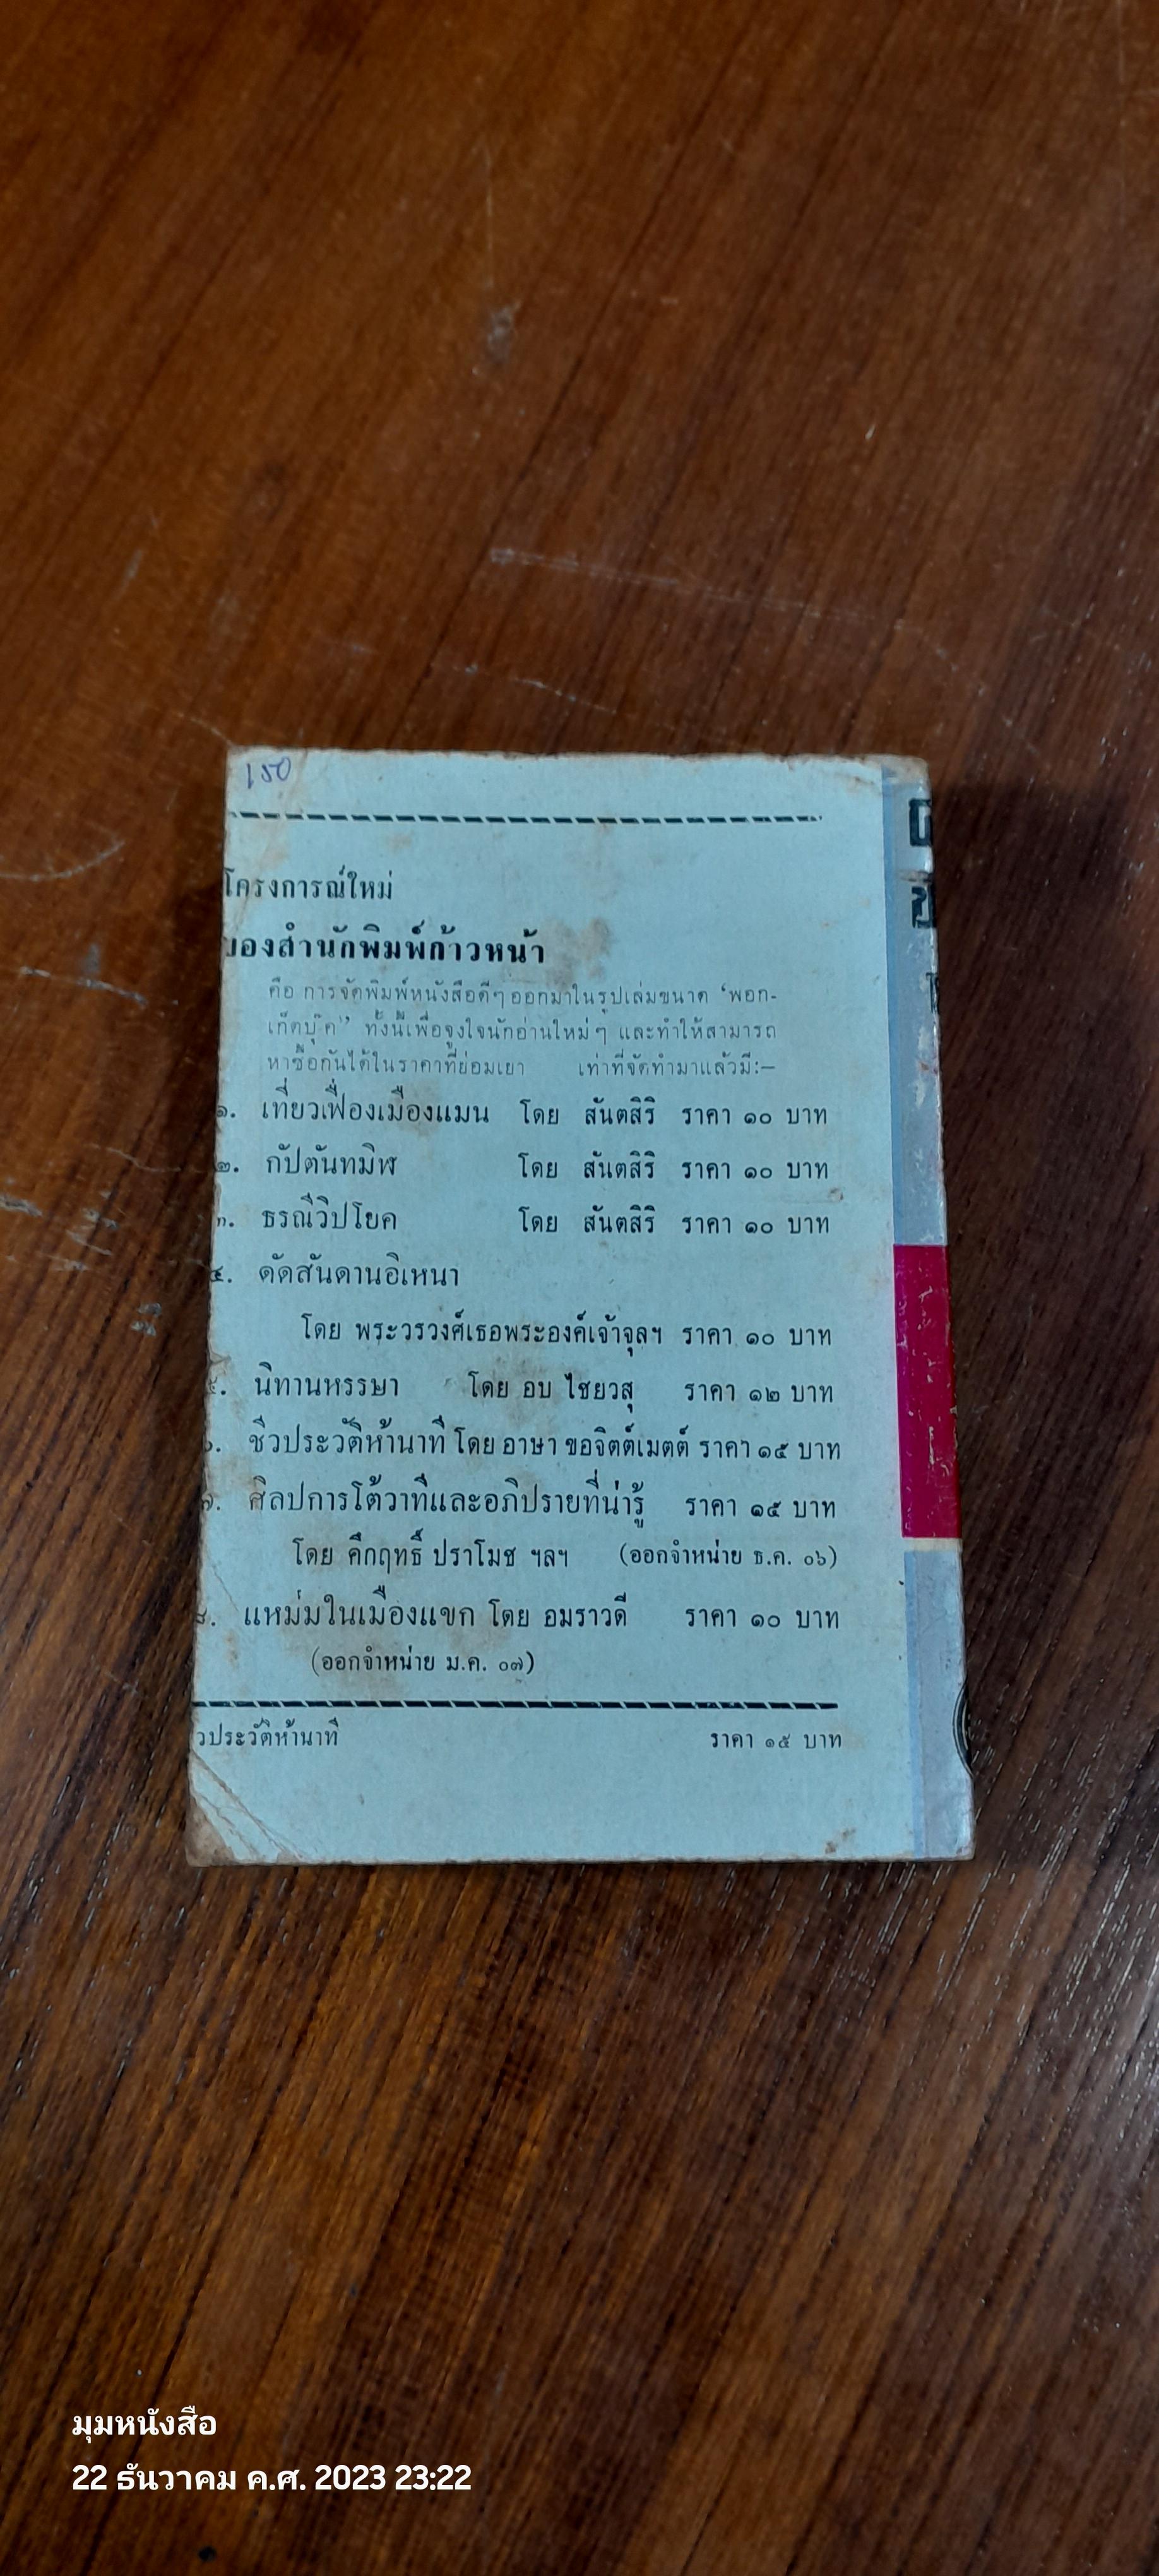 150
โครงการณ์ใหม่
ของสำนักพิมพ์ก้าวหน้า
คือ การจัดพิมพ์หนังสือดีๆ ออกมาในรูปเล่มขนาด ‘พอก-
เก็ตบุ๊ค’ ทั้งนี้เพื่อจูงใจนักอ่านใหม่ๆ และทำให้สามารถ
หาซื้อกันได้ในราคาที่ย่อมเยา เท่าที่จัดทำมาแล้วมี:—
๑. เที่ยวเฟื่องเมืองแมน โดย สันตสิริ ราคา ๑๐ บาท
๒. กัปตันทมิฬ โดย สันตสิริ ราคา ๑๐ บาท
๓. ธรณีวิปโยค โดย สันตสิริ ราคา ๑๐ บาท
๔. ดัดสันดานอิเหนา
โดย พระวรวงศ์เธอพระองค์เจ้าจุลฯ ราคา ๑๐ บาท
๕. นิทานหรรษา โดย อบ ไชยวสุ ราคา ๑๒ บาท
๖. ชีวประวัติห้านาที โดย อาษา ขอจิตต์เมตต์ ราคา ๑๕ บาท
๗. ศิลปการโต้วาทีและอภิปรายที่น่ารู้ ราคา ๑๕ บาท
โดย คึกฤทธิ์ ปราโมช ฯลฯ (ออกจำหน่าย ธ.ค. ๐๖)
๘. แหม่มในเมืองแขก โดย อมราวดี ราคา ๑๐ บาท
(ออกจำหน่าย ม.ค. ๐๗)
วประวัติห้านาที ราคา ๑๕ บาท
มุมหนังสือ
22 ธันวาคม ค.ศ. 2023 23:22